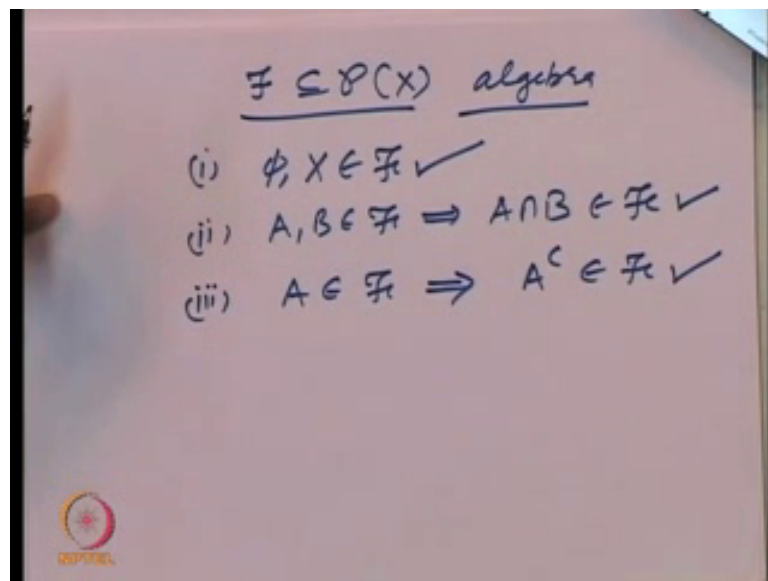 ℱ ⊆ 𝒫(X) algebra
(i) ϕ, X ∈ ℱ ✓
(ii) A, B ∈ ℱ ⇒ A ∩ B ∈ ℱ ✓
(iii) A ∈ ℱ ⇒ Aᶜ ∈ ℱ ✓
NPTEL